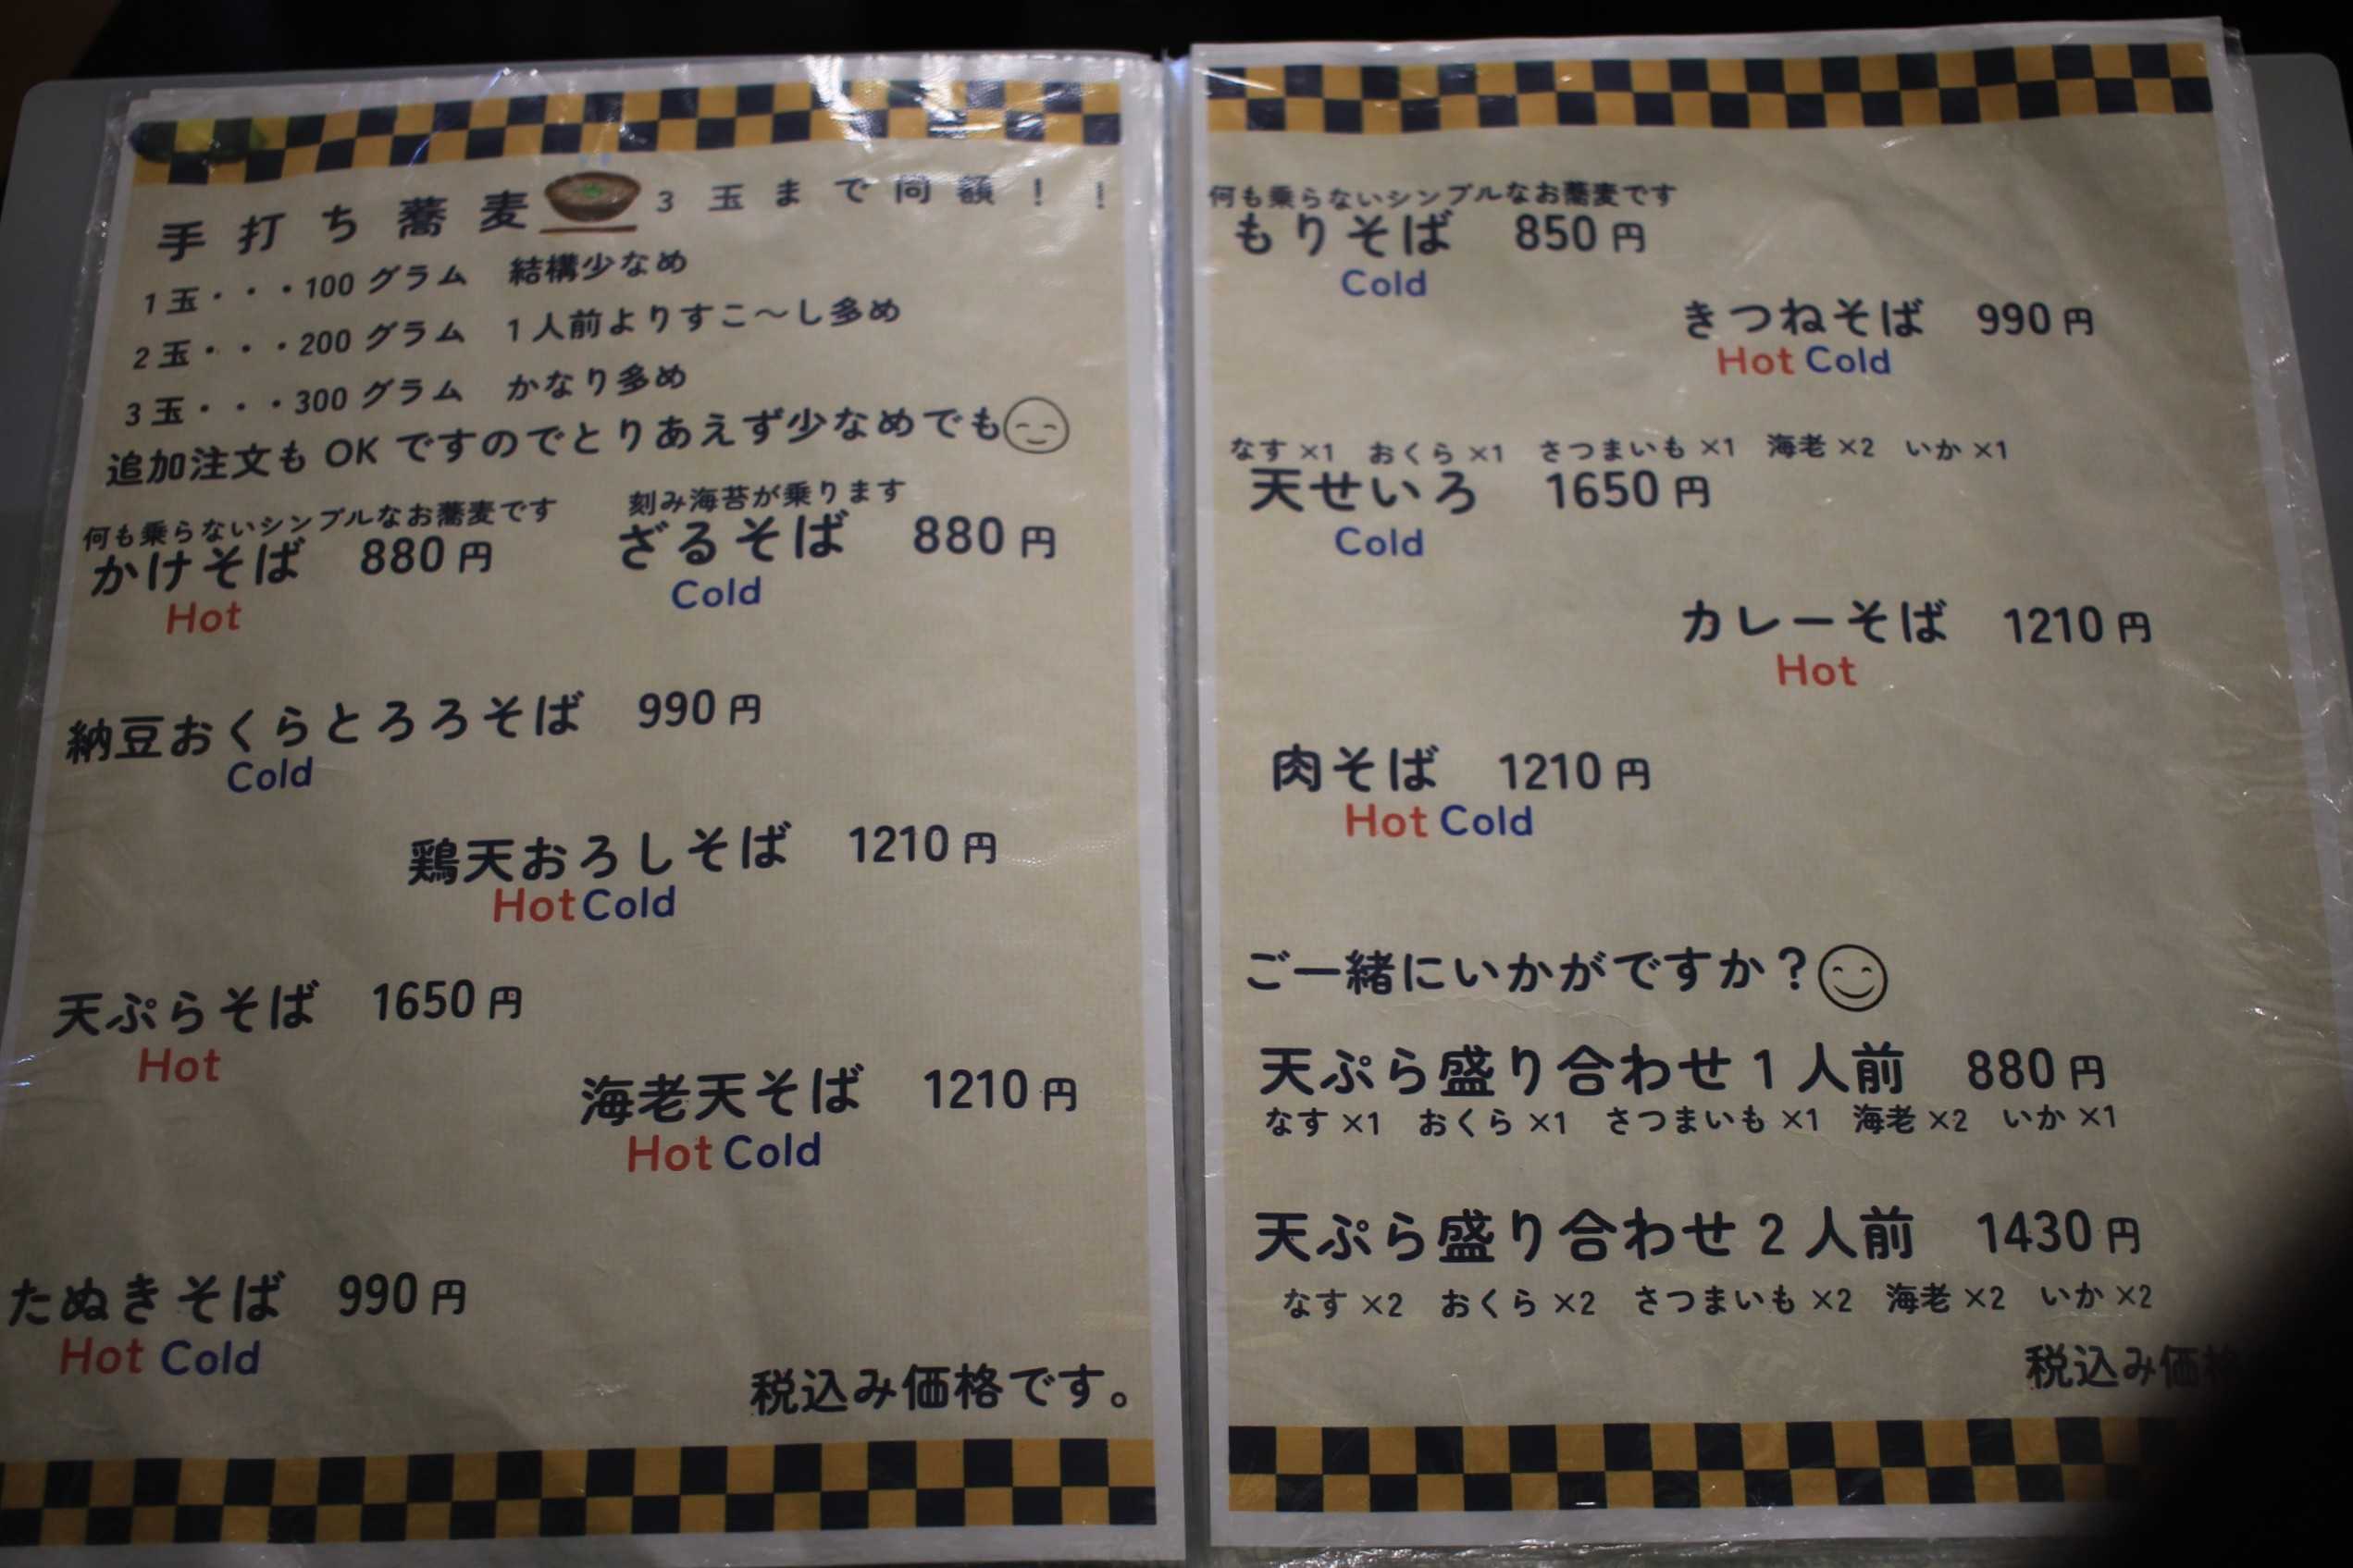 手打ち蕎麦 3玉まで同額!!
1玉・・・100グラム 結構少なめ
2玉・・・200グラム 1人前よりすこ〜し多め
3玉・・・300グラム かなり多め
追加注文もOKですのでとりあえず少なめでも
何も乗らないシンプルなお蕎麦です 刻み海苔が乗ります
かけそば 880円 ざるそば 880円
Hot Cold
納豆おくらとろろそば 990円
Cold
鶏天おろしそば 1210円
Hot Cold
天ぷらそば 1650円
Hot
海老天そば 1210円
Hot Cold
たぬきそば 990円
Hot Cold
税込み価格です。
何も乗らないシンプルなお蕎麦です
もりそば 850円
Cold
きつねそば 990円
Hot Cold
なす×1 おくら×1 さつまいも×1 海老×2 いか×1
天せいろ 1650円
Cold
カレーそば 1210円
Hot
肉そば 1210円
Hot Cold
ご一緒にいかがですか?
天ぷら盛り合わせ1人前 880円
なす×1 おくら×1 さつまいも×1 海老×2 いか×1
天ぷら盛り合わせ2人前 1430円
なす×2 おくら×2 さつまいも×2 海老×2 いか×2
税込み価格